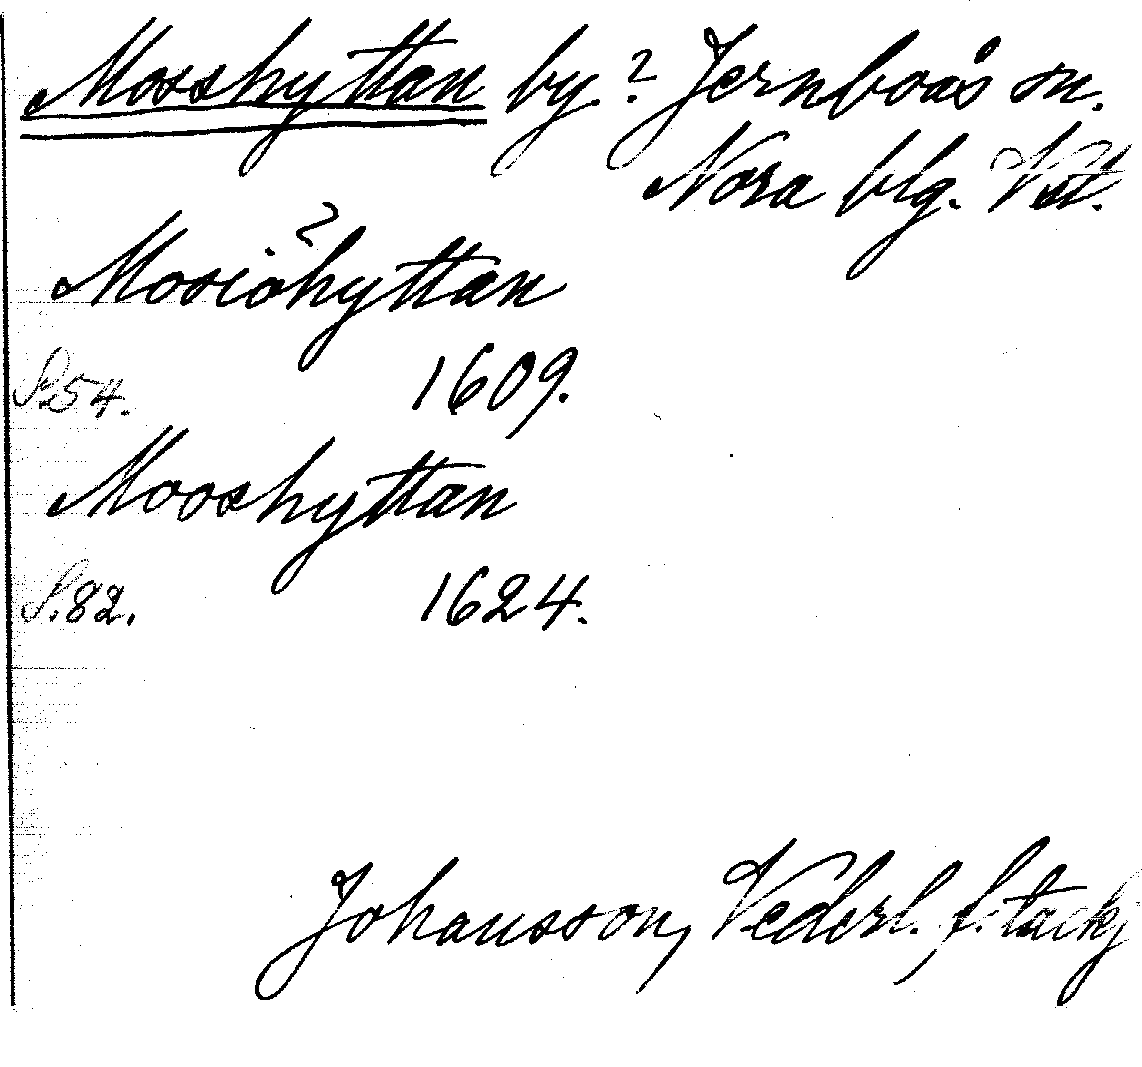 Mosshyttan by.? Jernboås sn.
Nora blg. Vst.
?
Mosiöhyttan
S.54. 1609.
Mooshyttan
S.82. 1624.
Johansson, Vederl. f. tackj